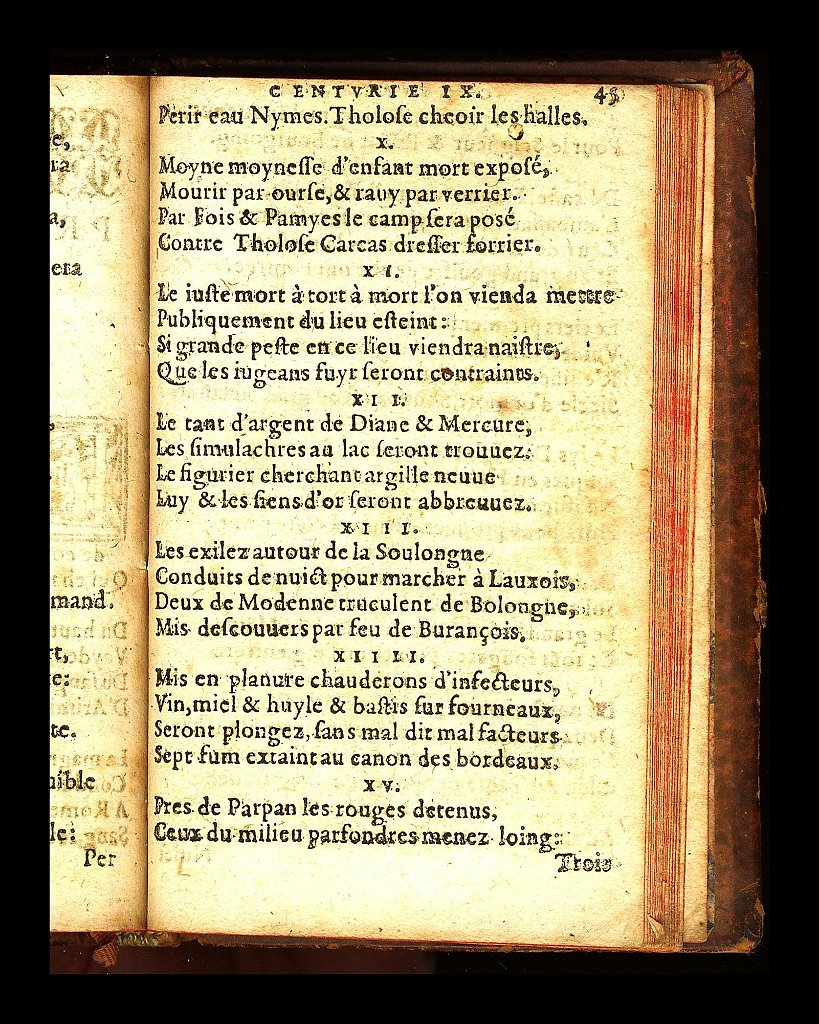 e,
ra
a,
era
mand.
rt,
re:
te.
nible
le:
Per
CENTVRIE IX. 45
Perir eau Nymes.Tholoſe cheoir les halles.
X.
Moyne moyneſſe d'enfant mort expoſé,
Mourir par ourſe,& rauy par verrier.
Par Fois & Pamyes le camp ſera poſé
Contre Tholoſe Carcas dreſſer forrier.
XI.
Le iuſte mort à tort à mort l'on vienda mettre
Publiquement du lieu eſteint:
Si grande peſte en ce lieu viendra naiſtre,
Que les iugeans fuyr ſeront contraints.
XII.
Le tant d'argent de Diane & Mercure,
Les ſimulachres au lac ſeront trouuez:
Le figurier cherchant argille neuue
Luy & les ſiens d'or ſeront abbreuuez.
XIII.
Les exilez autour de la Soulongne
Conduits de nuict pour marcher à Lauxois,
Deux de Modenne truculent de Bolongne,
Mis deſcouuers par feu de Burançois.
XIIII.
Mis en planure chauderons d'infecteurs,
Vin,miel & huyle & baſtis ſur fourneaux,
Seront plongez, ſans mal dit mal facteurs
Sept fum extaint au canon des bordeaux.
XV.
Pres de Parpan les rouges detenus,
Ceux du milieu parfondres menez loing:
Trois